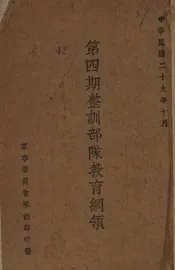 中華民國二十九年十月
第四期整訓部隊教育綱領
軍事委員會軍訓部印發